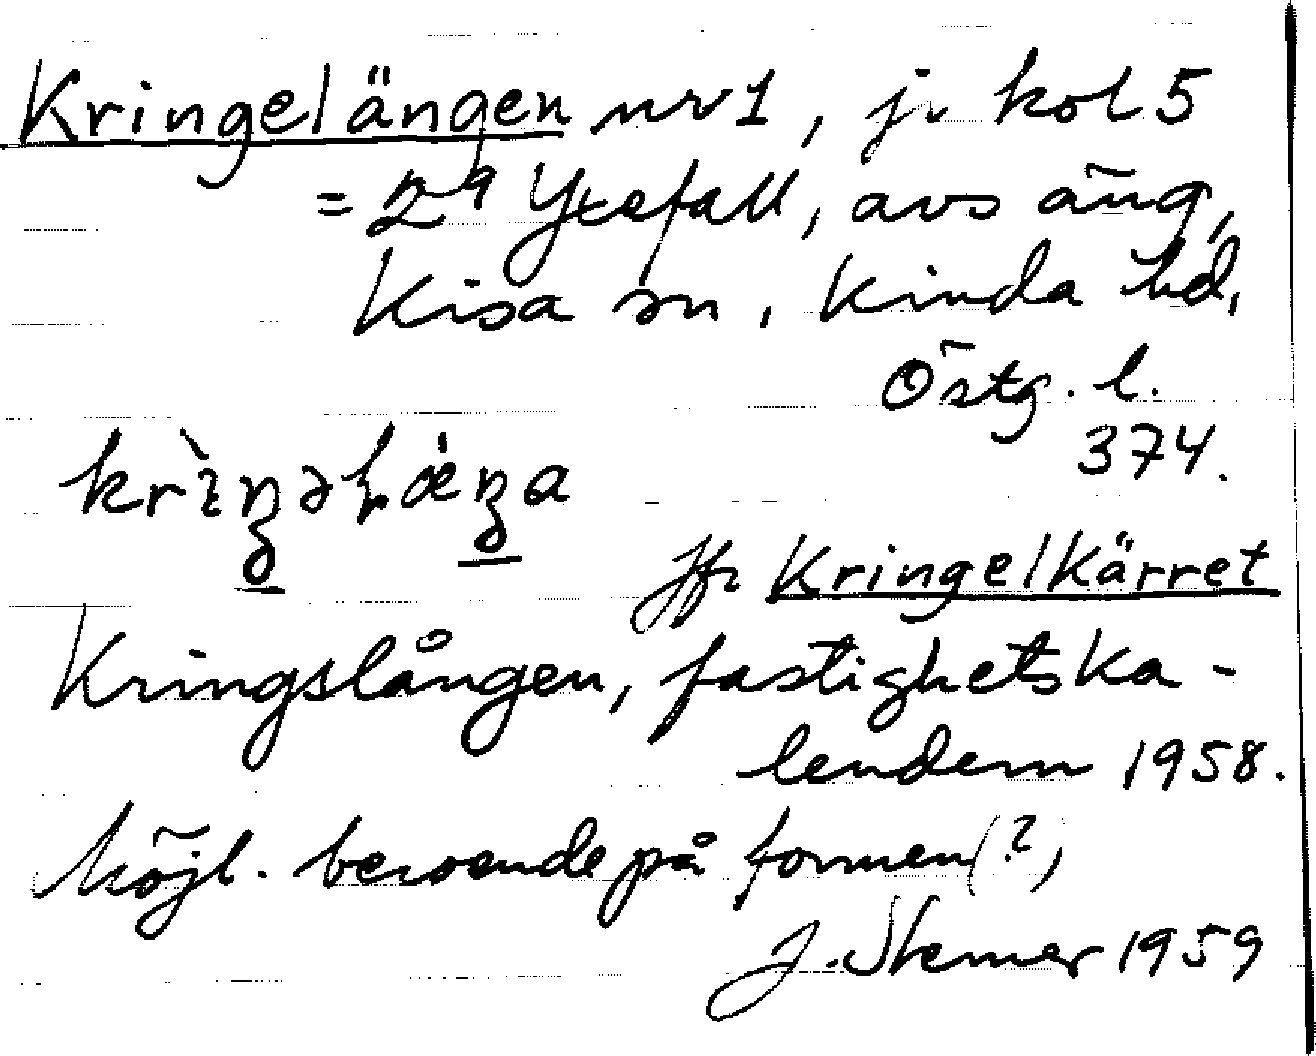 Kringelängen nr 1, jr kol 5
= 2⁹ Yxefall, avs äng,
Kisa sn, Kinda hd,
Östg. l.
374.
krìŋəlæ̇ŋa
Jfr Kringelkärret
Kringslången, fastighetska-
lendern 1958.
Möjl. beroende på formen (?)
J. Stemer 1959